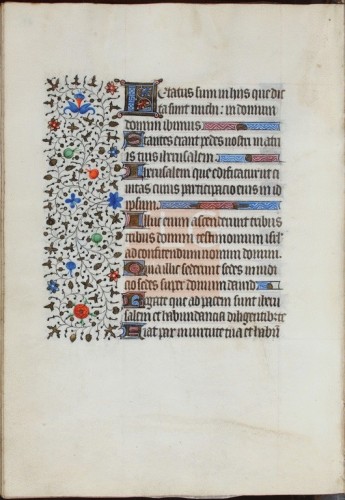 Letatus sum in hiis que dic
ta sunt michi: in domum
domini ibimus
Stantes erant pedes nostri in atri
is tuis iherusalem
Iherusalem que edificatur ut ci
uitas cuius participacio eius in id
ipsum
Illuc enim ascenderunt tribus
tribus domini testimonium isrl
ad confitendum nomini domini
Quia illic sederunt sedes in iudi
cio sedes super domum dauid
Rogate que ad pacem sunt iheru
salem et habundancia diligentib; te
Fiat pax in uirtute tua et habun